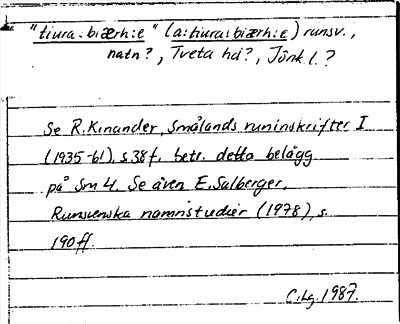 "tiura:biærh:e" (a:tiura:biærh:e) runsv.,
natn?, Tveta hd?, Jönk l.?
Se R. Kinander, Smålands runinskrifter I
(1935-61), s. 38 f. betr. detta belägg
på Sm 4. Se även E. Salberger,
Runsvenska namnstudier (1978), s.
190 ff.
C.Lg. 1987.